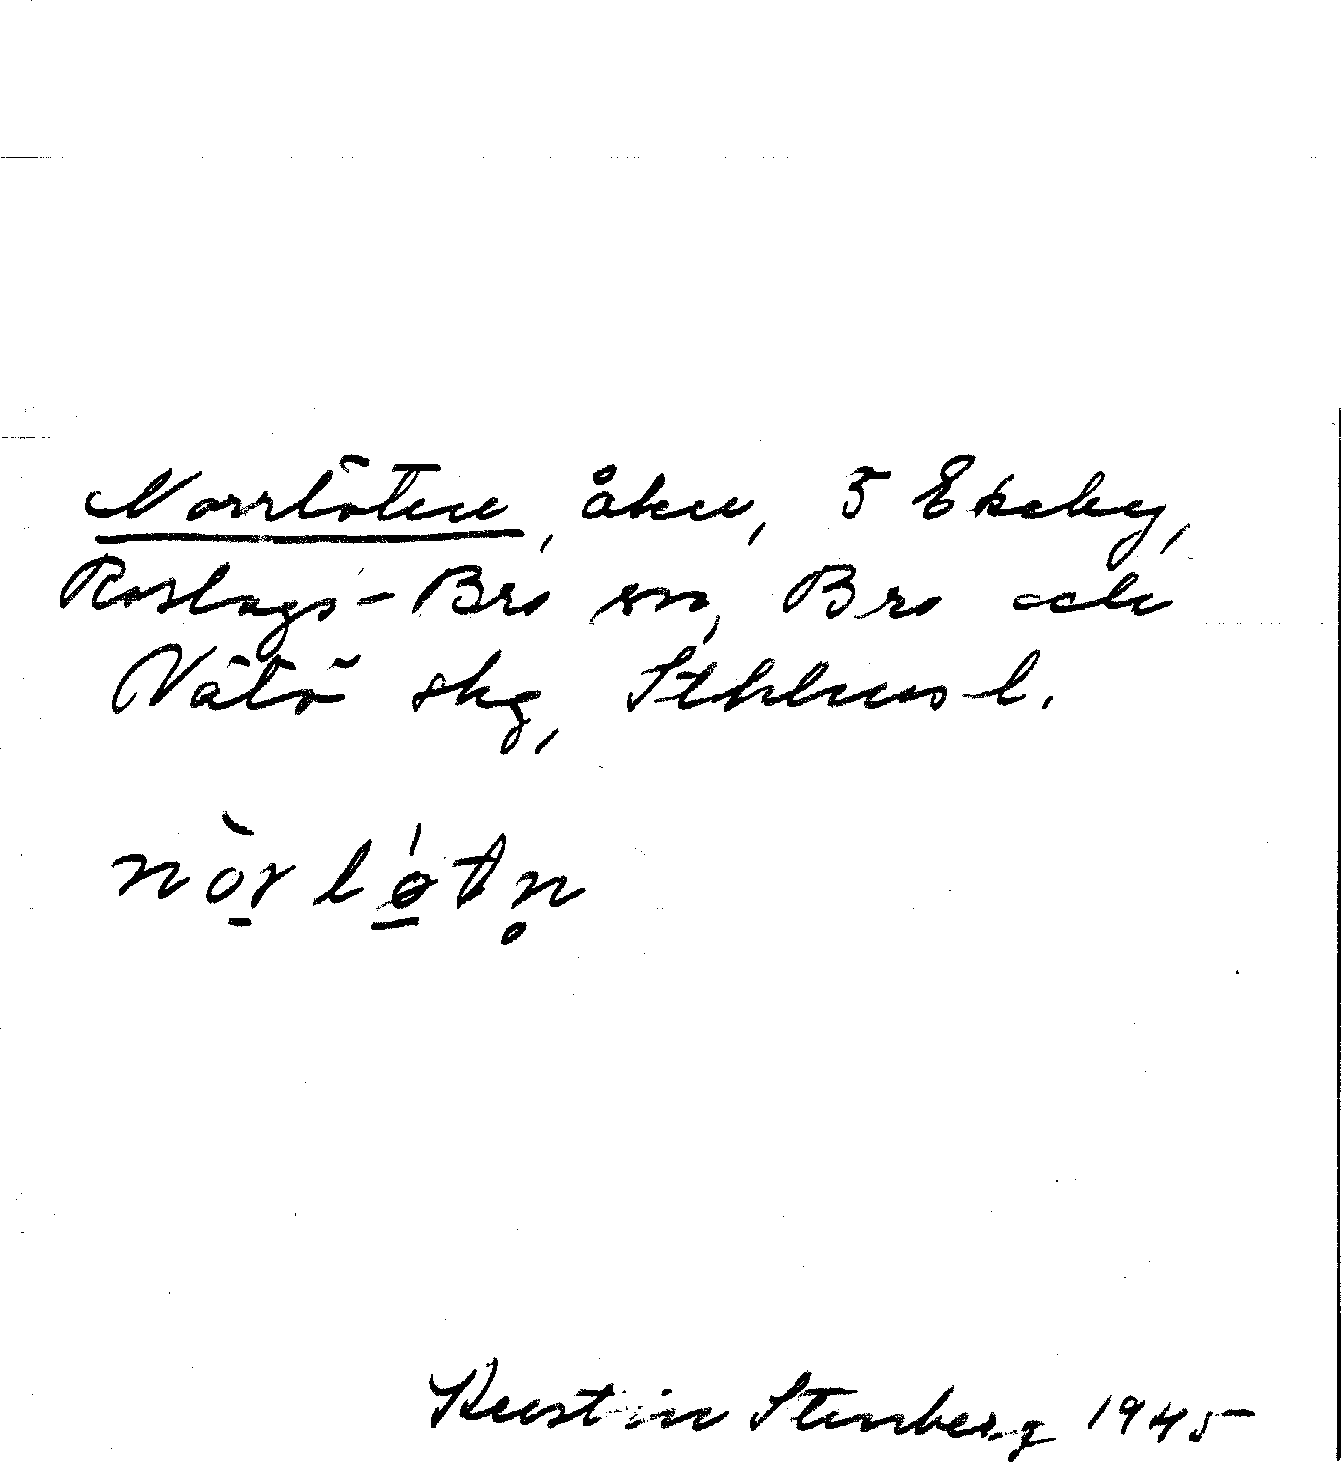 Norrlöten, åker, 5 Ekeby,
Roslags-Bro sn, Bro och
Vätö skg, Sthlms l.
nòr lǿtn̥
Kerstin Stenberg 1945